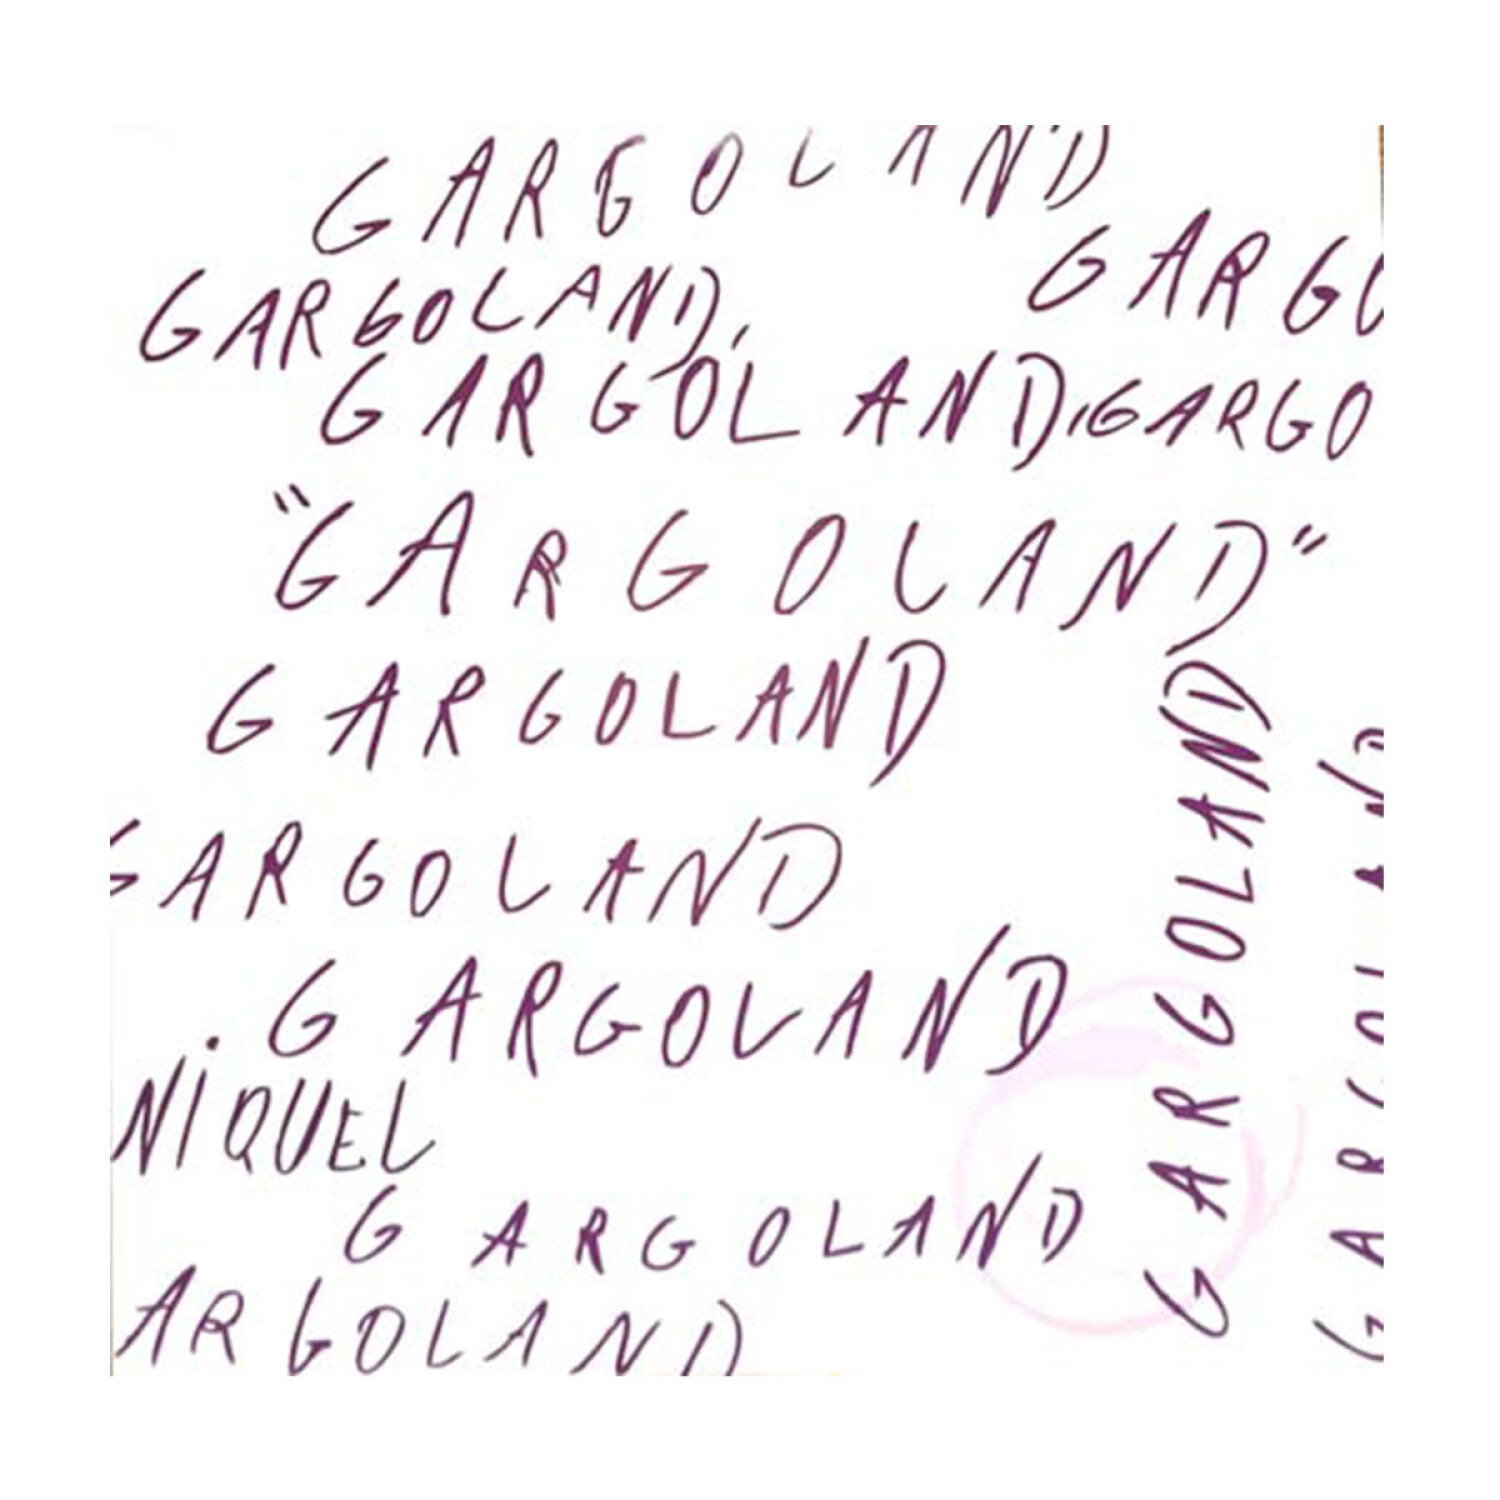 GARGOLAND
GARGO
GARGOLAND,
GARGOLAND, GARGO
"GARGOLAND"
GARGOLAND
GARGOLAND
GARGOLAND
NIQUEL
GARGOLAND
ARGOLAND
GARGOLAND
GARGOLAND